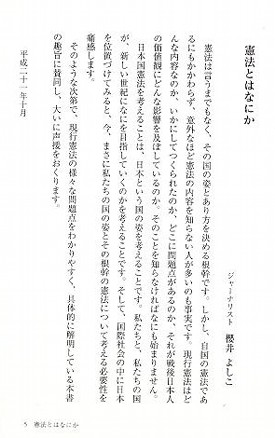 憲法とはなにか
ジャーナリスト 櫻井よしこ
憲法は言うまでもなく、その国の姿とあり方を決める根幹です。しかし、自国の憲法であ
るにもかかわらず、意外なほど憲法の内容を知らない人が多いのも事実です。現行憲法はど
んな内容なのか、いかにしてつくられたのか、どこに問題点があるのか、それが戦後日本人
の価値観にどんな影響を及ぼしているのか。そのことを知らなければなにも始まりません。
日本国憲法を考えることは、日本という国の姿を考えることです。私たちと、私たちの国
が、新しい世紀になにを目指していくのかを考えることです。そして、国際社会の中に日本
を位置づけてみると、今、まさに私たちの国の姿とその根幹の憲法について考える必要性を
痛感します。
そのような次第で、現行憲法の様々な問題点をわかりやすく、具体的に解明している本書
の趣旨に賛同し、大いに声援をおくります。
平成二十一年十月
5 憲法とはなにか